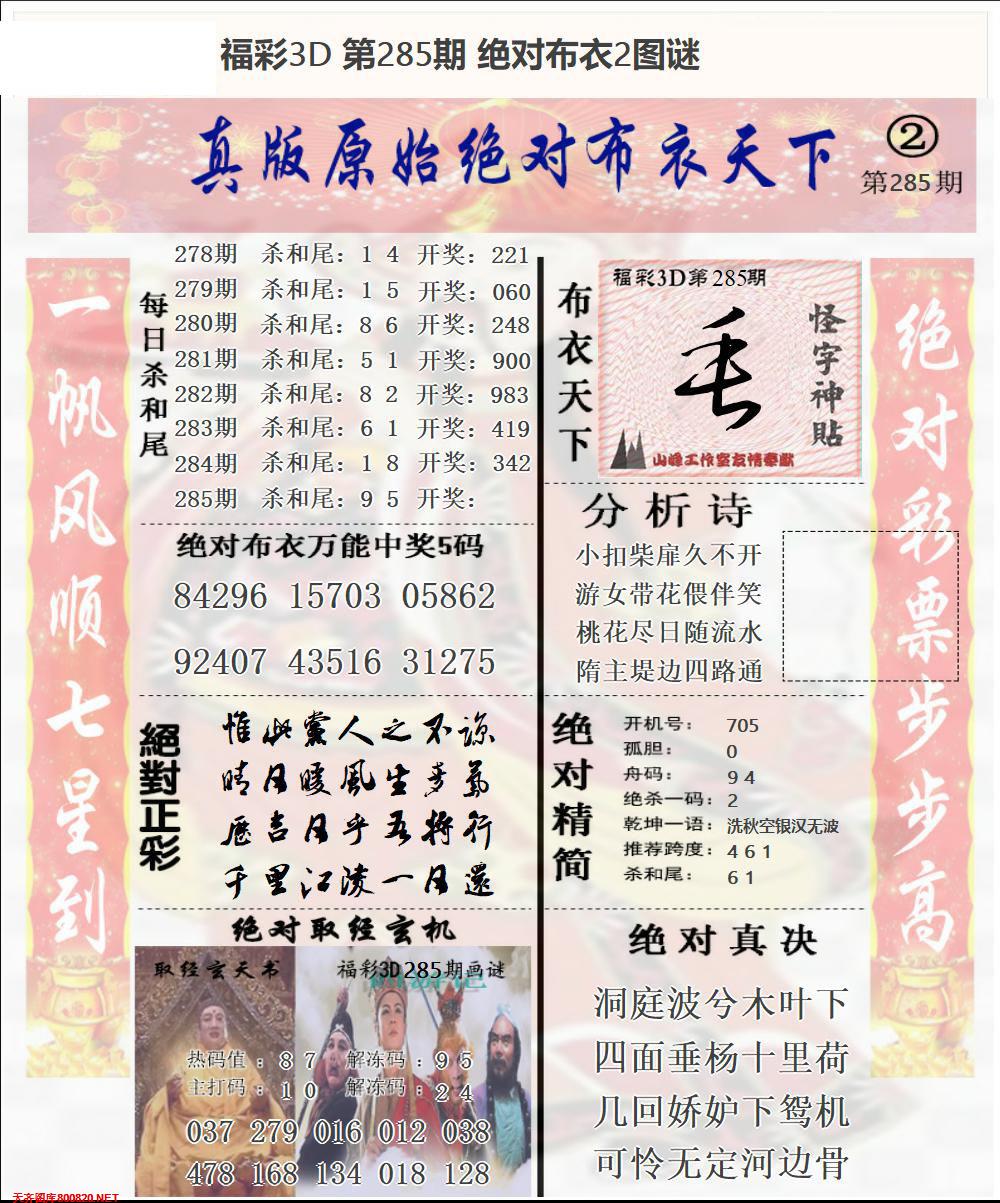 福彩3D 第285期 绝对布衣2图谜
真版原始绝对布衣天下
②
第285期
一帆风顺七星到
每日杀和尾
278期 杀和尾：1 4 开奖：221
279期 杀和尾：1 5 开奖：060
280期 杀和尾：8 6 开奖：248
281期 杀和尾：5 1 开奖：900
282期 杀和尾：8 2 开奖：983
283期 杀和尾：6 1 开奖：419
284期 杀和尾：1 8 开奖：342
285期 杀和尾：9 5 开奖：
绝对布衣万能中奖5码
84296 15703 05862
92407 43516 31275
絕對正彩
惟此黨人之不谅
晴月暖風生
歷吉日乎吾将行
千里江陵一日還
绝对取经玄机
取经玄天书
福彩3D285期画谜
热码值：8 7 解冻码：9 5
主打码：1 0 解冻码：2 4
037 279 016 012 038
478 168 134 018 128
布衣天下
福彩3D第285期
怪字神貼
山峰工作室友情奉献
分析诗
小扣柴扉久不开
游女带花偎伴笑
桃花尽日随流水
隋主堤边四路通
绝对精简
开机号：705
孤胆：0
舟码：9 4
绝杀一码：2
乾坤一语：洗秋空银汉无波
推荐跨度：4 6 1
杀和尾：6 1
绝对真决
洞庭波兮木叶下
四面垂杨十里荷
几回娇妒下鸳机
可怜无定河边骨
绝对彩票步步高
天齐图库800820.NET